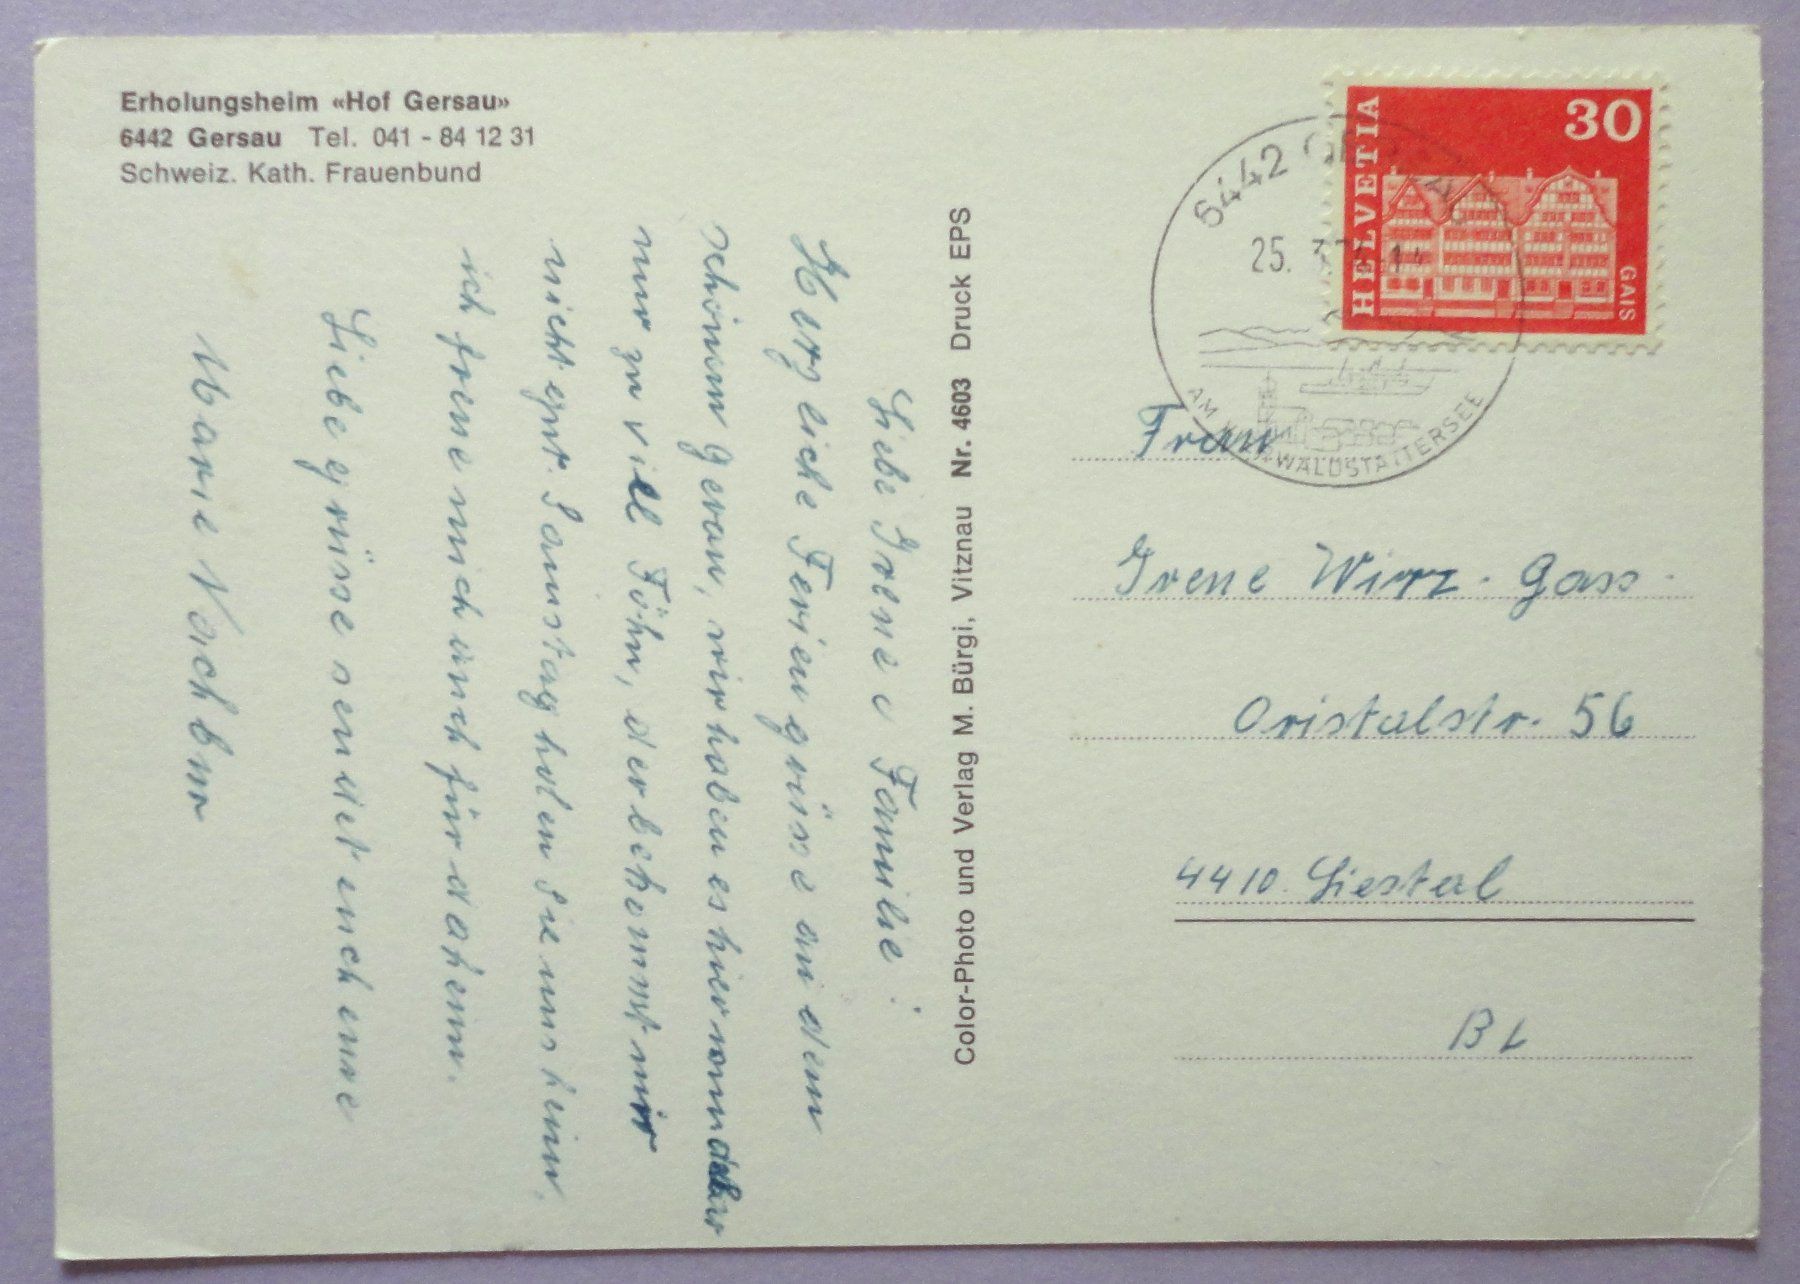 Erholungsheim «Hof Gersau»
6442 Gersau Tel. 041 - 84 12 31
Schweiz. Kath. Frauenbund
Liebe Irene u Familie!
Herzliche Feriengrüsse aus dem
schönen Gersau, wir haben es hier
nur zu viel Föhn, der bekommt mir
nicht gut. Samstag holen Sie uns heim,
ich freue mich auch für daheim.
Liebe grüsse sendet euch eure
Marie
Color-Photo und Verlag M. Bürgi, Vitznau Nr. 4603 Druck EPS
HELVETIA
30
GAIS
6442
25. 3.
AM VIERWALDSTÄTTERSEE
Frau
Irene Wirz-Gass
Oristalstr. 56
4410 Liestal
BL